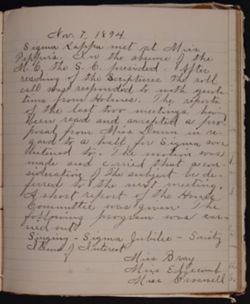 Nov. 7, 1894
Sigma Kappa met at Miss
In the absence of the
M. C. the S. C. presided. After
reading of the Scriptures the roll
call was responded to with quota-
tions from Holmes. The reports
of the last two meetings having
been read and accepted a pro-
posal from Miss Dunn in re-
gard to a hall for Sigma was
listened to. The motion was
made and carried that con-
sideration of the subject be de-
ferred to the next meeting.
A short report of the Honey
Committee was given. The
following program was car-
ried out:
Singing - Sigma Jubilee - Society
Items of Interest
Miss Bray
Miss Edgecomb
Miss Croswell